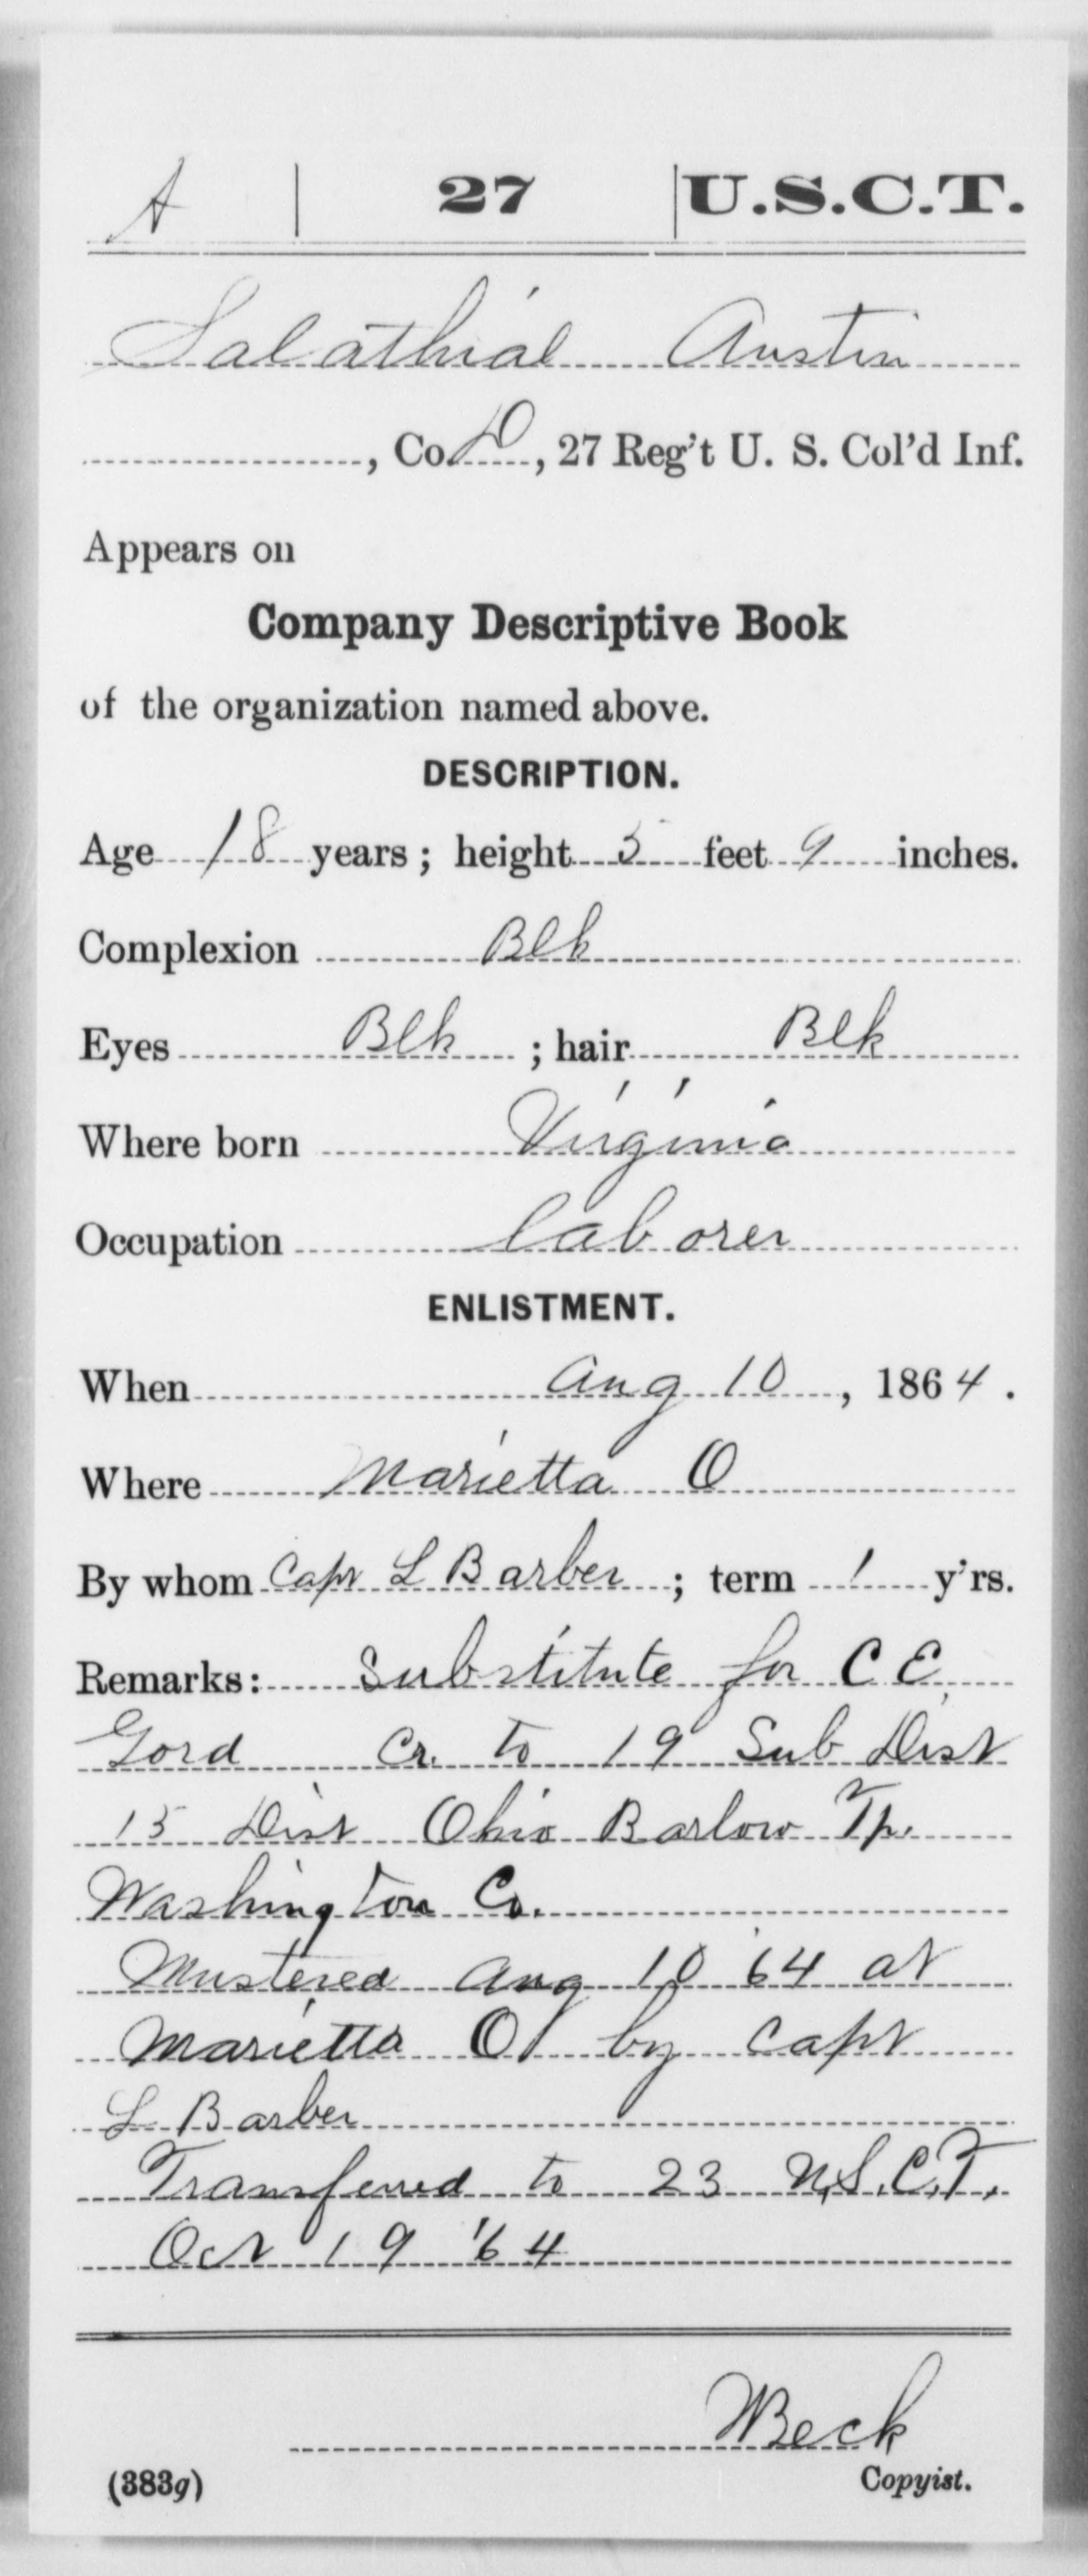 A | 27 | U.S.C.T.
Salathial Austin
, Co. D, 27 Reg't U. S. Col'd Inf.
Appears on
Company Descriptive Book
of the organization named above.
DESCRIPTION.
Age 18 years; height 5 feet 9 inches.
Complexion Blk
Eyes Blk ; hair Blk
Where born Virginia
Occupation laborer
ENLISTMENT.
When Aug 10, 1864.
Where Marietta O
By whom Capt L Barber; term 1 y'rs.
Remarks: Substitute for C E
Gord Cr. to 19 Sub Dist
15 Dist Ohio Barlow Tp.
Washington Co.
Mustered Aug 10 '64 at
Marietta O by Capt
L Barber
Transferred to 23 U.S.C.T.
Oct 19 '64
Beck
(383g) Copyist.